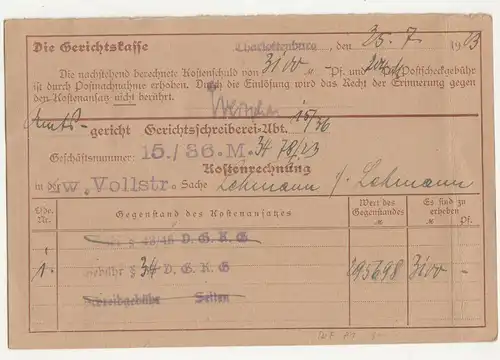 Die Gerichtskasse Charlottenburg, den 25. 7. 1903
Die nachstehend berechnete Kostenschuld von 3100 M — Pf. und Postscheckgebühr
ist durch Postnachnahme erhoben. Durch die Einlösung wird das Recht der Erinnerung gegen
den Kostenansatz nicht berührt.
Amts-gericht Gerichtsschreiberei-Abt. 15/36
Geschäftsnummer: 15./36. M. 34 78/23
Kostenrechnung
in der w. Vollstr. Sache Lehmann / Lehmann
Lfde. Nr. Gegenstand des Kostenansatzes Wert des Gegenstandes M Es sind zu erheben M Pf.
§ 43/45 D. G. K. G
1. Gebühr § 34 D. G. K. G 895698 3100 —
Schreibgebühr Seiten